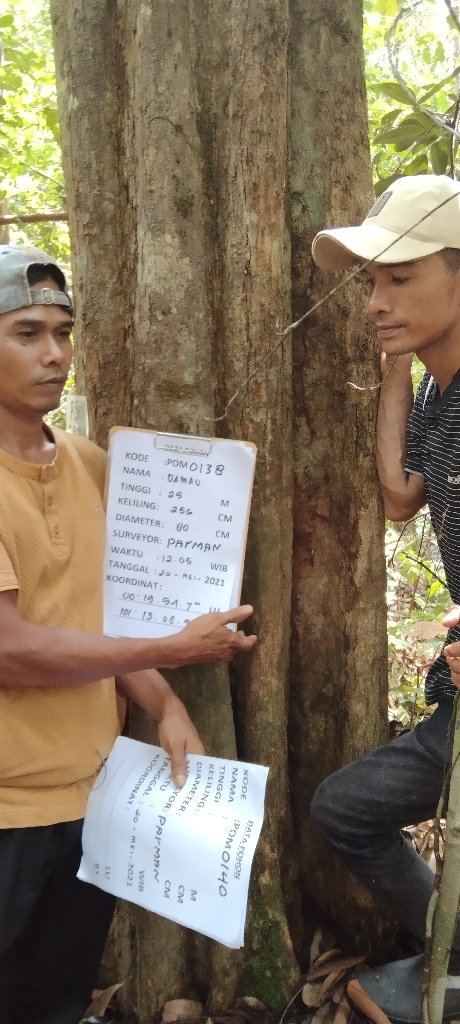 KODE :POM0138
NAMA :DAMAU
TINGGI : 25 M
KELILING: 256 CM
DIAMETER: 80 CM
SURVEYOR: PAYMAN
WAKTU :12.05 WIB
TANGGAL :20-MEI-2021
KOORDINAT:
00:19.51.7"
101:13.08.
DATA POHON
KODE :POM0140
NAMA :
TINGGI : M
KELILING: CM
DIAMETER: CM
PAYMAN
WIB
TANGGAL : 20-MEI-2021
KOORDINAT:
LU
BT